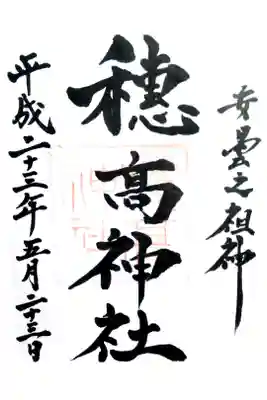 安曇之祖神
穂髙神社
平成二十三年五月二十三日